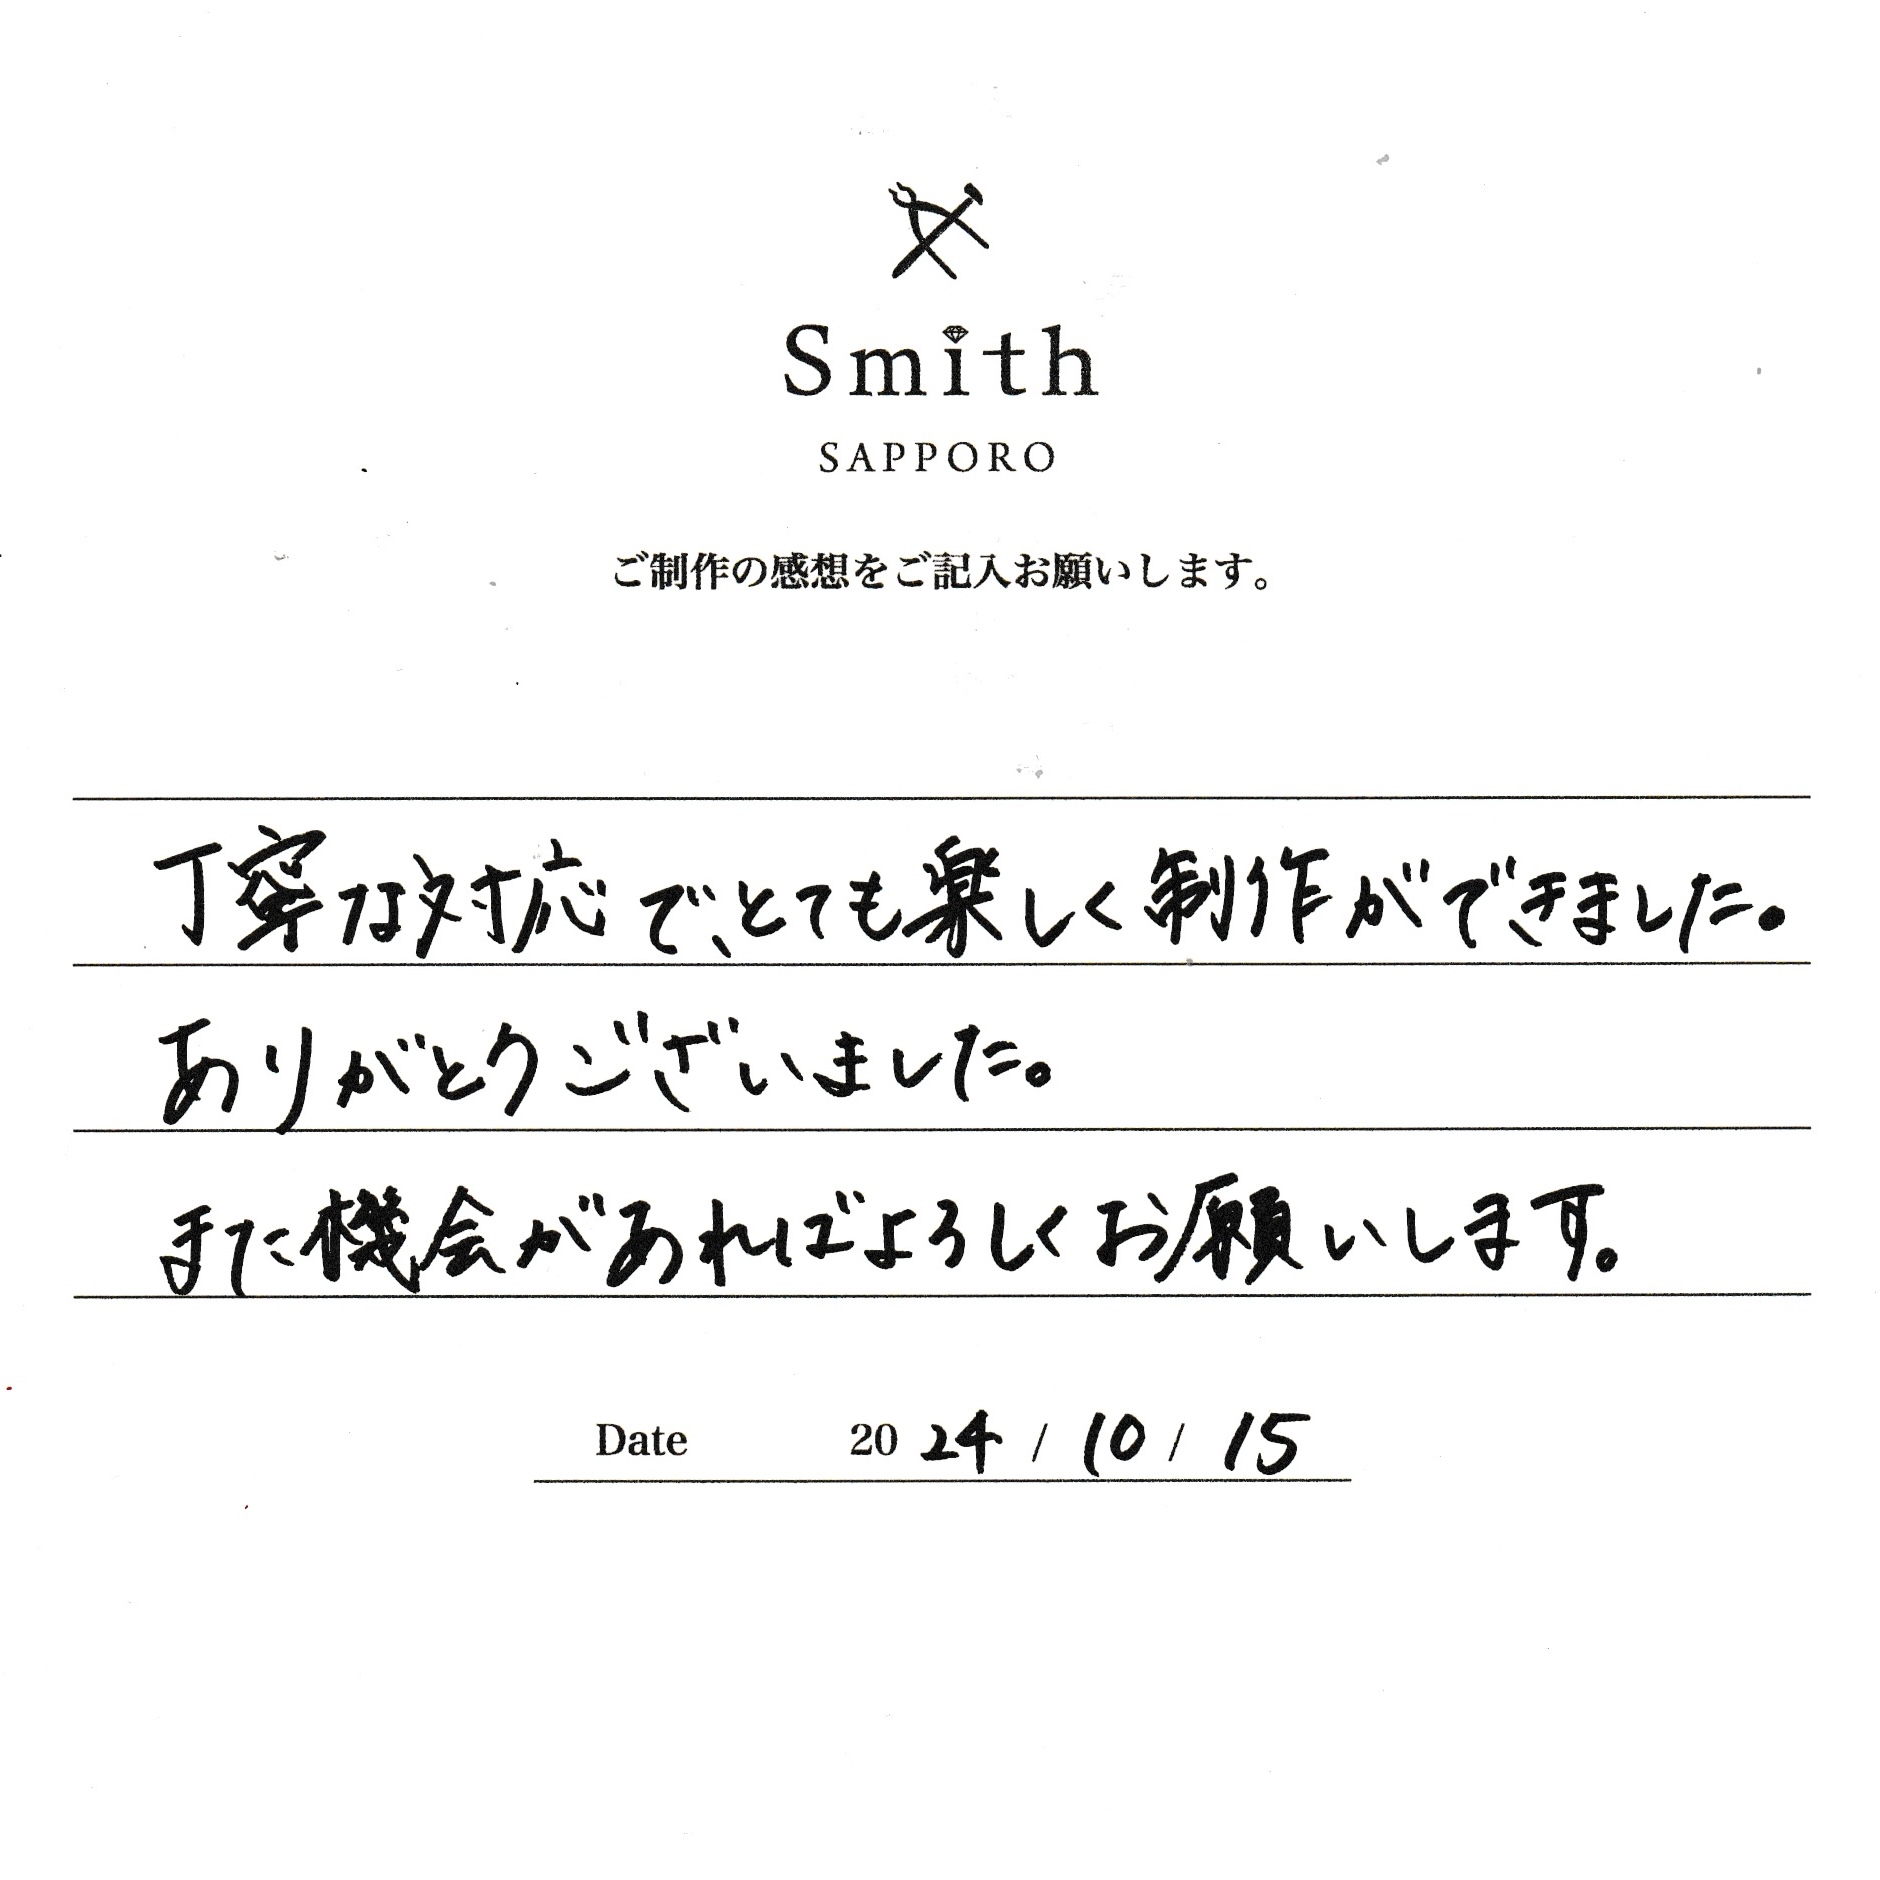 Smith
SAPPORO
ご制作の感想をご記入お願いします。
丁寧な対応で、とても楽しく制作ができました。
ありがとうございました。
また機会があればよろしくお願いします。
Date 2024 / 10 / 15